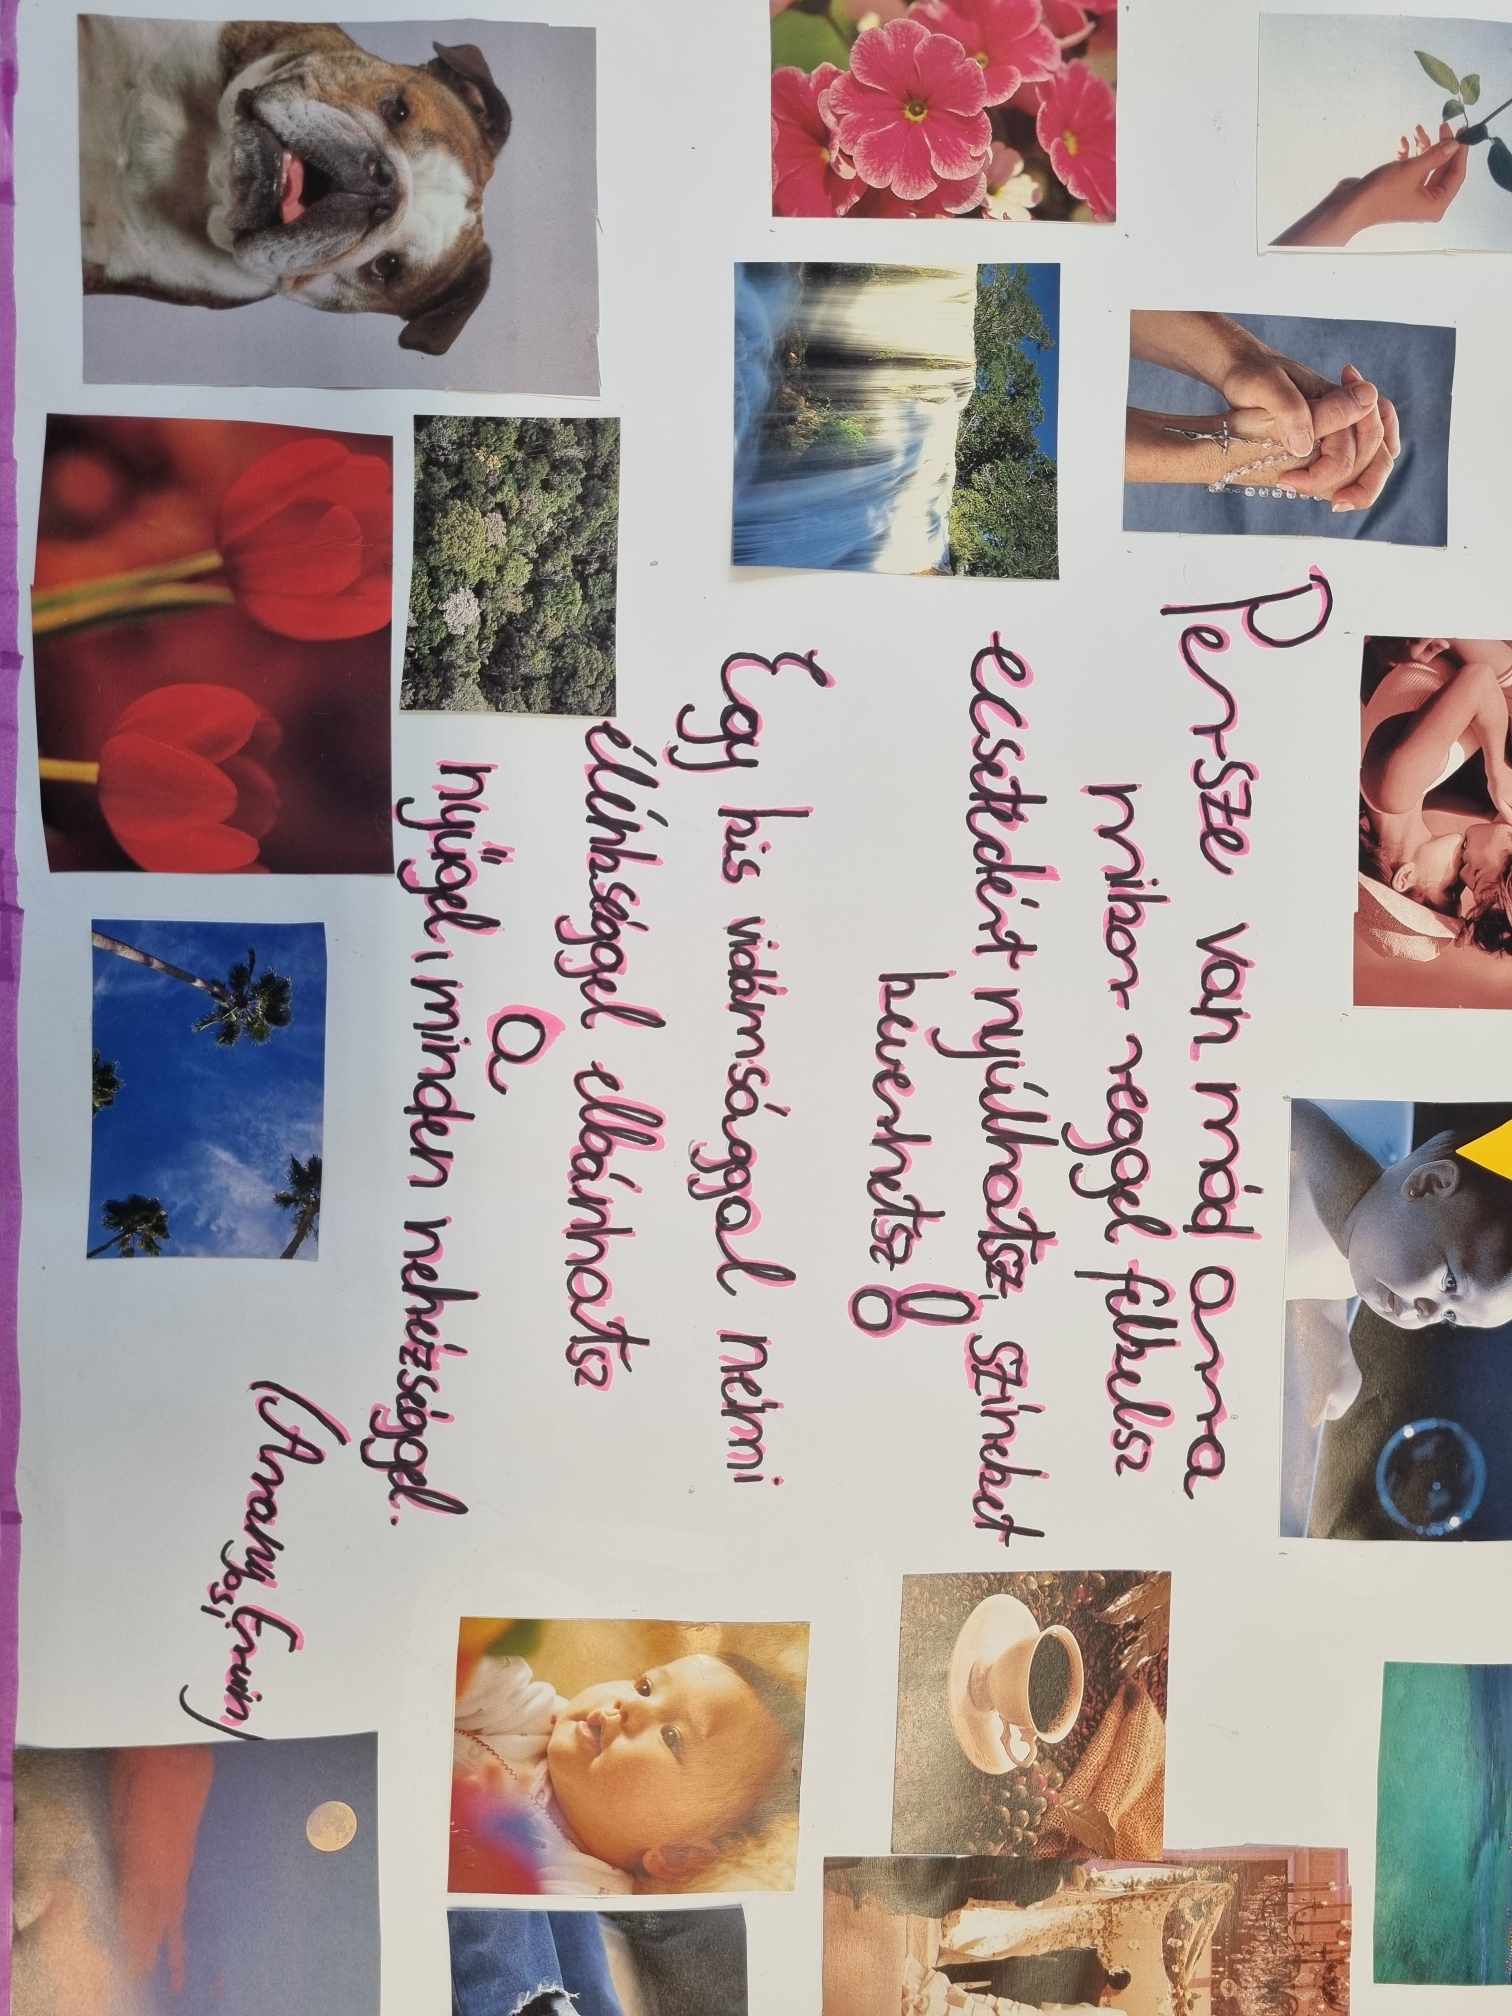 Persze van mód arra
mikor reggel felkelsz
ecsetedért nyúlhatsz, színeket
keverhetsz
Egy kis vidámsággal némi
élénkséggel elbánhatsz
a
nyűggel, minden nehézséggel.
(Aranyosi Ervin)